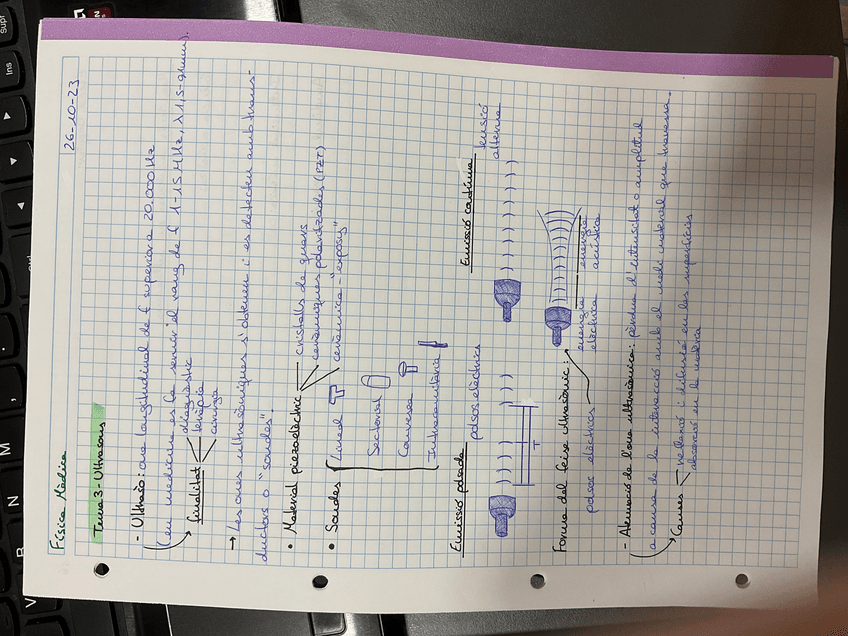 Física Mèdica
26-10-23
Tema 3 - Ultrasons
- Ultrasò: ona longitudinal de f superior a 20.000 Hz
(en medicina es fa servir el rang de f 1-15 MHz, λ 1,5-0,1mm).
finalitat
diagnòstic
teràpia
cirurgia
→ Les ones ultrasòniques s'obtenen i es detecten amb trans-
ductors o "sondes".
• Material piezoelèctric
cristalls de quars
ceràmiques polaritzades (PZT)
ceràmica-"epoxys"
• Sondes
Lineal
Sectorial
Convexa
Intracavitària
Emissió polsada
polsos elèctrics
T
Emissió contínua
tensió
alterna
Forma del feixe ultrasònic:
polsos elèctrics
energia
elèctrica
energia
acústica
- Atenuació de l'ona ultrasònica: pèrdua d'intensitat o amplitud
a causa de la interacció amb el medi material que travessa.
Causes
reflexió i difusió en les superfícies
absorció en la matèria
Supr
Ins
M
N
B
V